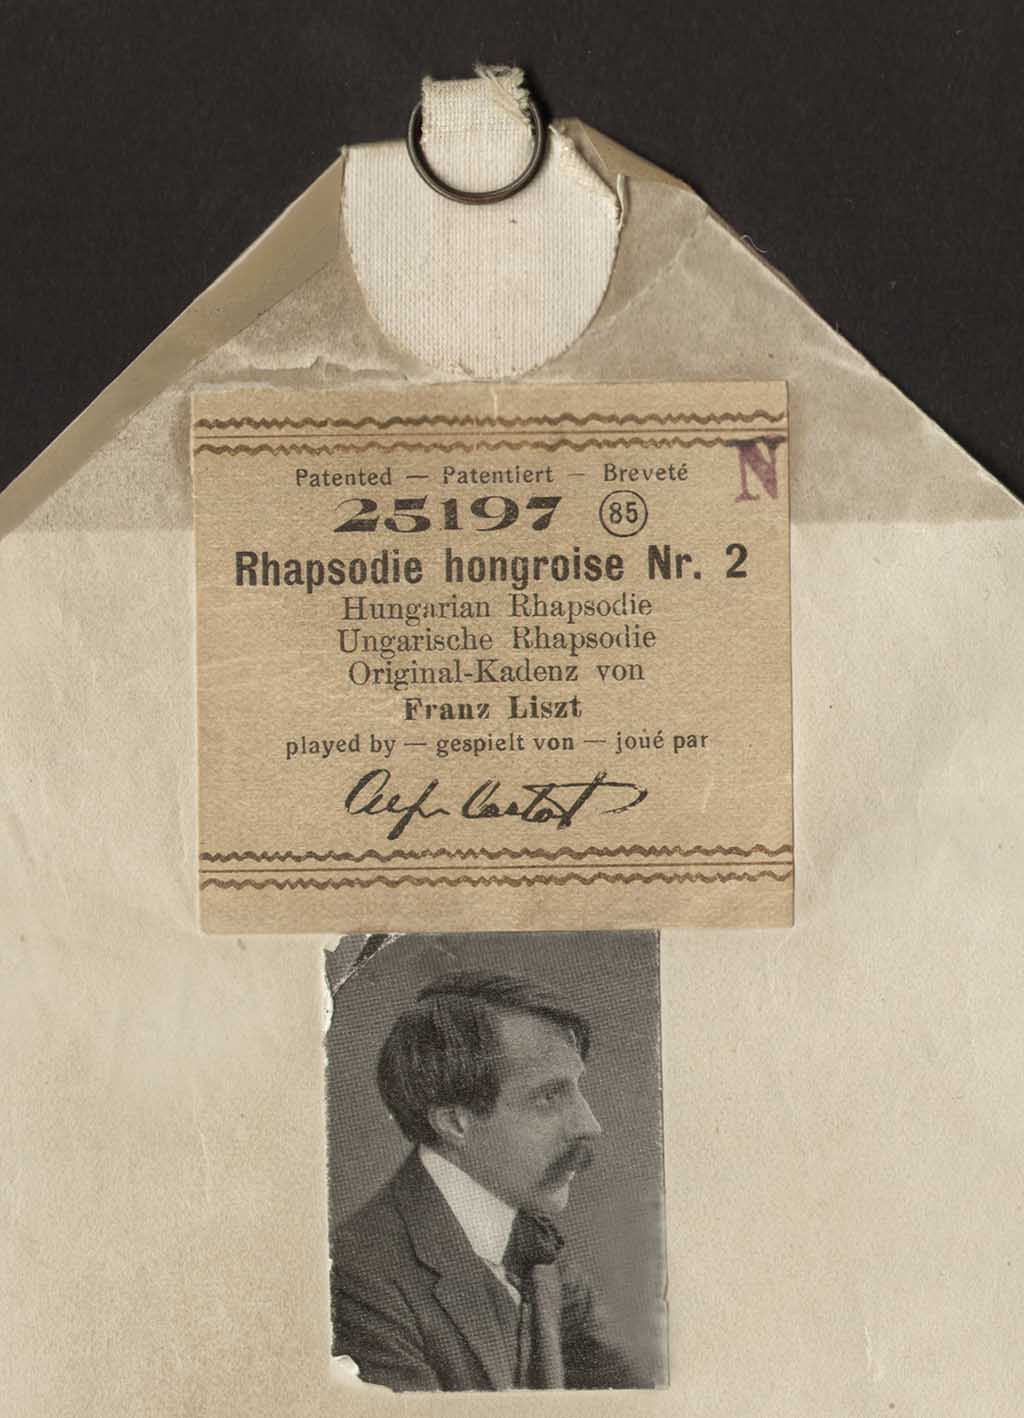 N
Patented — Patentiert — Breveté
25197 85
Rhapsodie hongroise Nr. 2
Hungarian Rhapsodie
Ungarische Rhapsodie
Original-Kadenz von
Franz Liszt
played by — gespielt von — joué par
Alfr Cortot